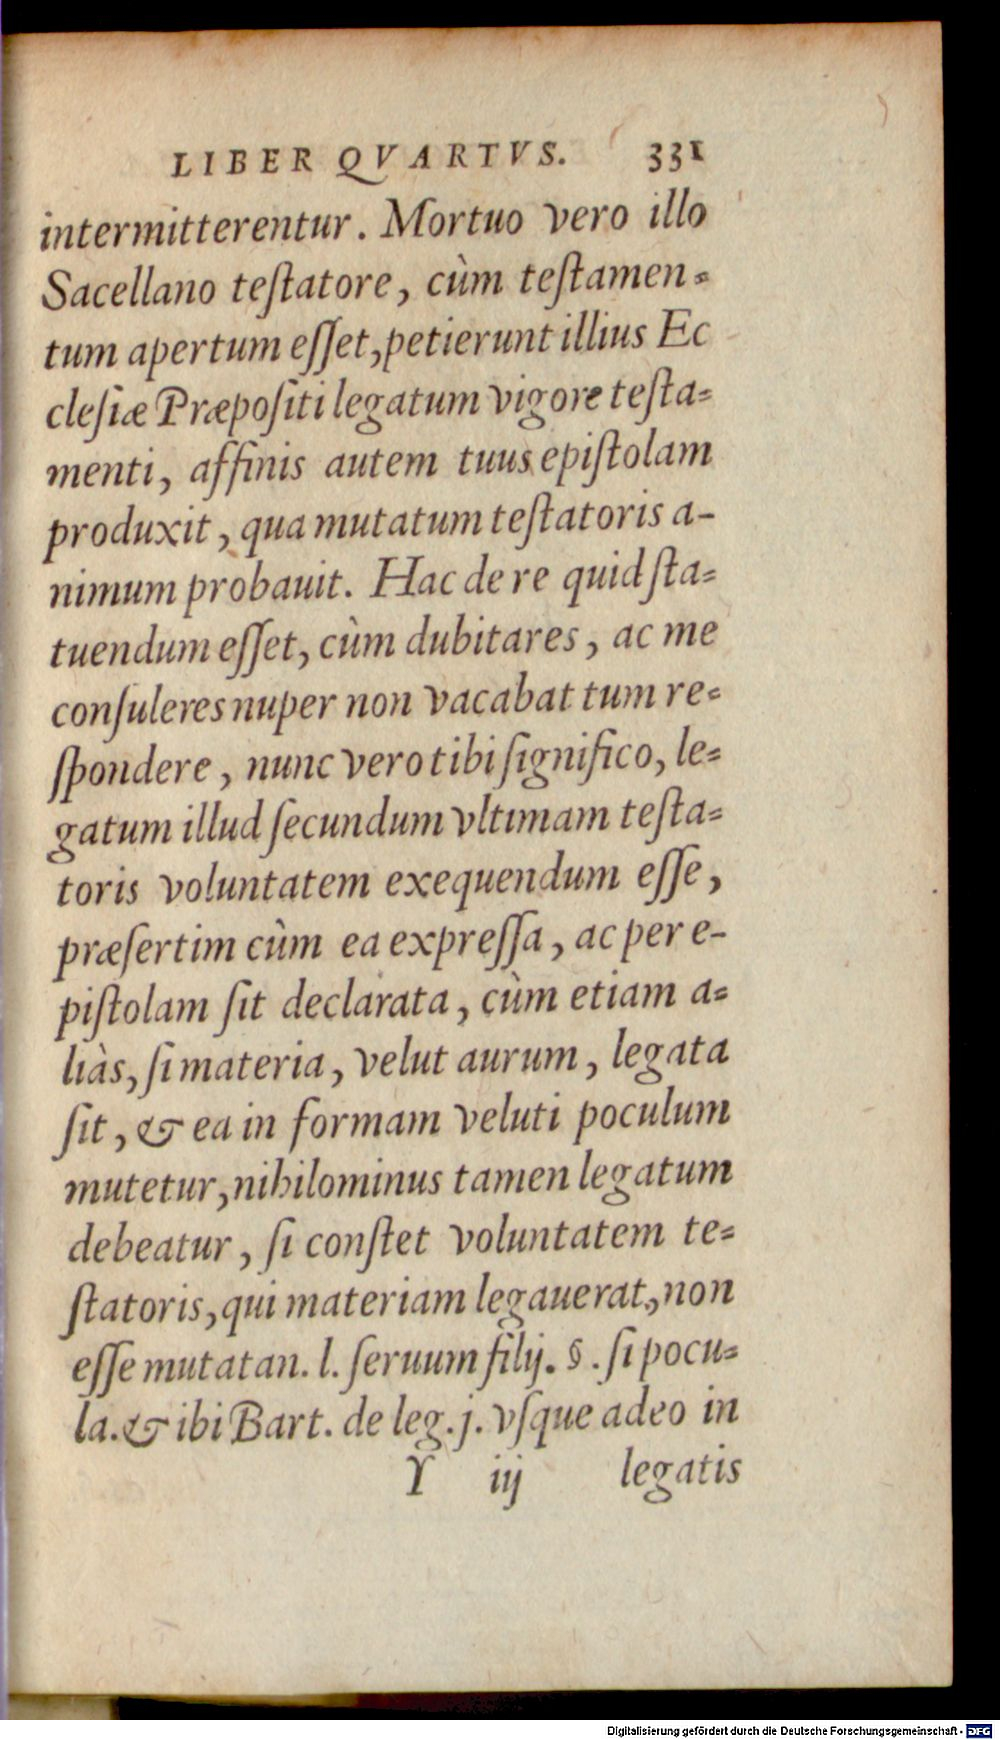 LIBER QVARTVS. 331
intermitterentur. Mortuo vero illo
Sacellano teſtatore, cùm teſtamen-
tum apertum eſſet, petierunt illius Ec
cleſiæ Præpoſiti legatum vigore teſta-
menti, affinis autem tuus epiſtolam
produxit, qua mutatum teſtatoris a-
nimum probauit. Hac de re quid ſta-
tuendum eſſet, cùm dubitares, ac me
conſuleres nuper non vacabat tum re-
ſpondere, nunc vero tibi ſignifico, le-
gatum illud ſecundum vltimam teſta-
toris voluntatem exequendum eſſe,
præſertim cùm ea expreſſa, ac per e-
piſtolam ſit declarata, cùm etiam a-
liàs, ſi materia, velut aurum, legata
ſit, & ea in formam veluti poculum
mutetur, nihilominus tamen legatum
debeatur, ſi conſtet voluntatem te-
ſtatoris, qui materiam legauerat, non
eſſe mutatan. l. ſeruum filij. §. ſi pocu-
la. & ibi Bart. de leg. j. vſque adeo in
Y iij legatis
Digitalisierung gefördert durch die Deutsche Forschungsgemeinschaft - DFG